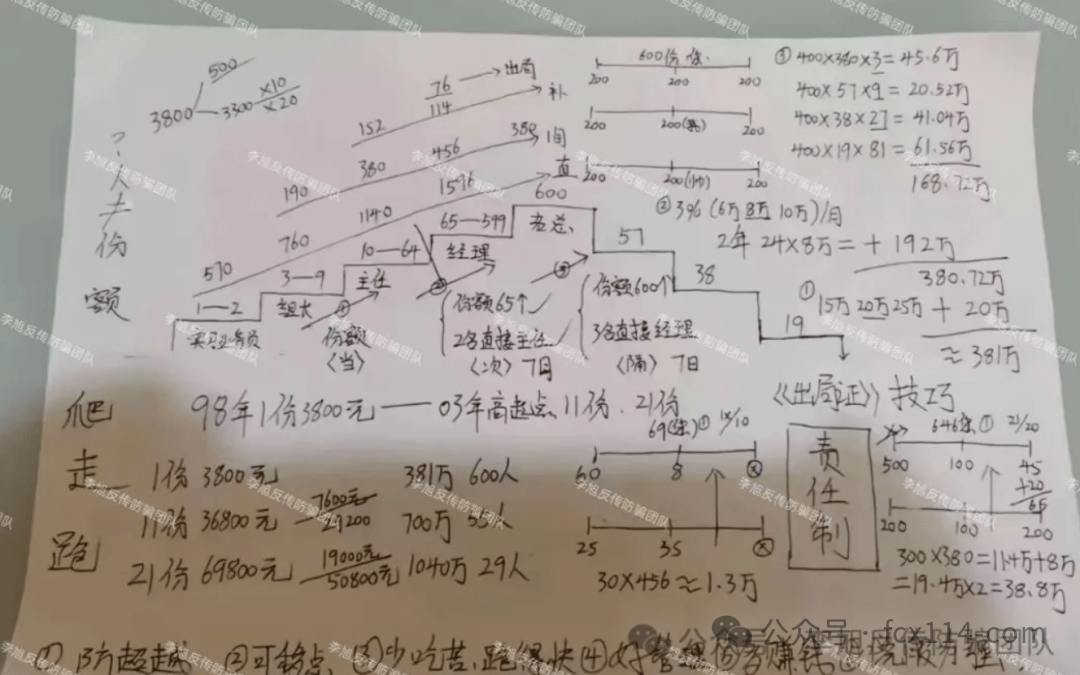 500
3800
3300 ×10
×20
人
份
额
76 出局
114 补
152
380 456 380 间
190 1596 直
1140 600
760 65—599 老总
570 10—64 经理
3—9 主任
1—2 组长
实习业务员
份额
〈当〉
份额65个
2名直接主任
〈次〉7日
份额600个
3名直接经理
〈隔〉7日
57
38
19
600份
200 200 200
200 200 200
200 200 200
③ 400×380×3=45.6万
400×57×9=20.52万
400×38×27=41.04万
400×19×81=61.56万
168.72万
② 3% (6万 8万 10万)/月
2年 24×8万=+192万
380.72万
① 15万 20万 25万 + 20万
≈381万
《出局证》技巧
爬 98年1份3800元——03年高起点、11份、21份
走 1份 3800元 381万 600人
11份 36800元 7600元 29200 700万
跑 21份 69800元 19000元 50800元 1040万 29人
60 8
25 35
30×456≈1.3万
责
任
制
646 ① 21/20
500 100 45
+20
65
200 100 200
300×380=11.4万+8万
=19.4万×2=38.8万
③少吃苦、跑得快④好管理
李旭反传防骗团队
公众号·fcx114.com